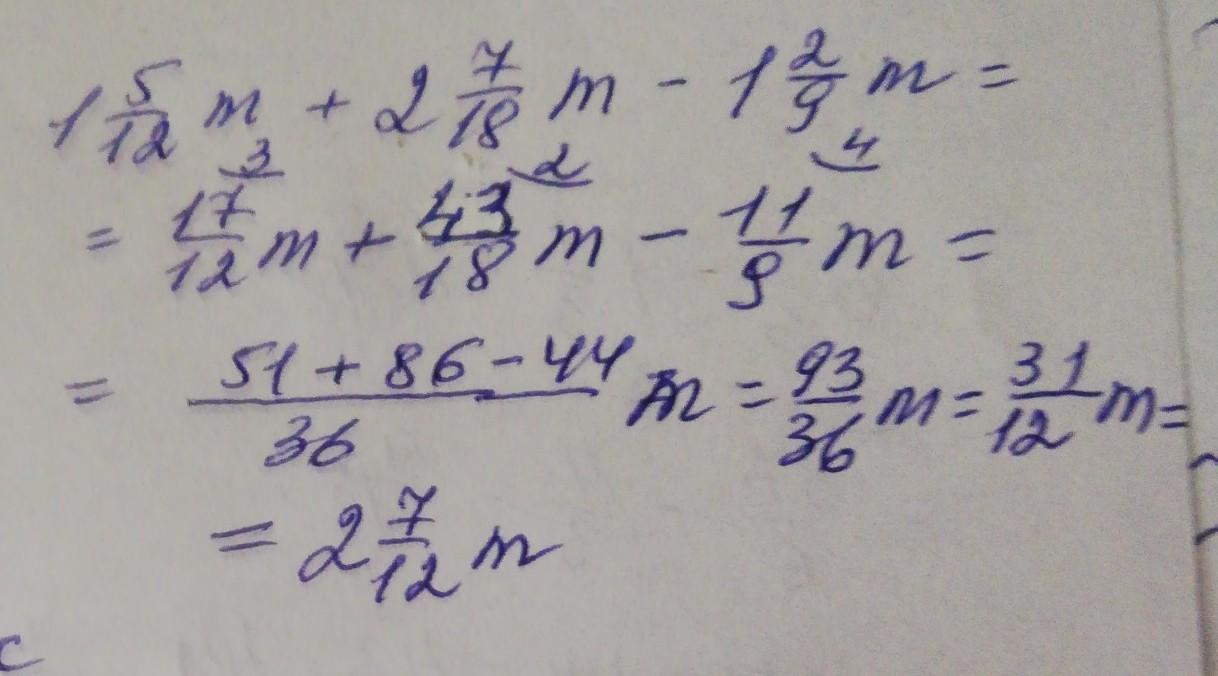 1 5/12 m + 2 7/18 m - 1 2/9 m =
3 2 4
= 17/12 m + 43/18 m - 11/9 m =
= (51 + 86 - 44)/36 m = 93/36 m = 31/12 m =
= 2 7/12 m
c